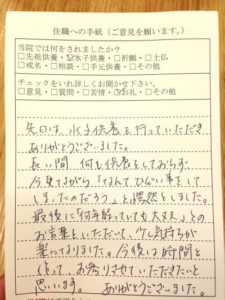 住職への手紙(ご意見を願います。)
当院では何をされましたか?
□先祖供養・☑水子供養・□祈願・□土仏
□戒名・□相談・□手元供養・□その他
チェックをいれ詳しくお聞かせ下さい。
□意見・□質問・□苦情・☑お礼・□その他
先日は、水子供養を行っていただき
ありがとうございました。
長い間 何も供養をしておらず
今更ながら「なんてひどい事をして
しまったのだろう」と愕然としました。
最後に「何年経っていても大丈夫」との
お言葉をいただいて、少し気持ちが
楽になりました。今後は時間を
つくって、お参りさせていただきたいと
思います。 ありがとうございました。